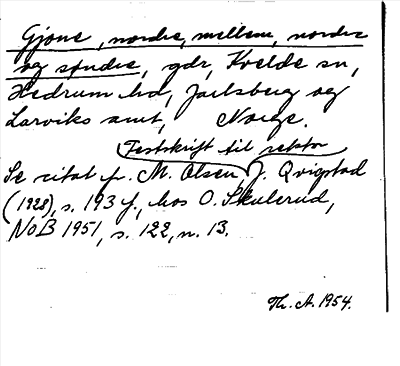 Gjone, nordre, mellem, nordre
og søndre, gdr, Kvelde sn,
Hedrum hd, Jarlsberg og
Larviks amt, Norge.
Festskrift til rektor
Se citat fr. M. Olsen, J. Qvigstad
(1928), s. 193 f., hos O. Skulerud,
NoB 1951, s. 122, n. 13.
Th. A. 1954.